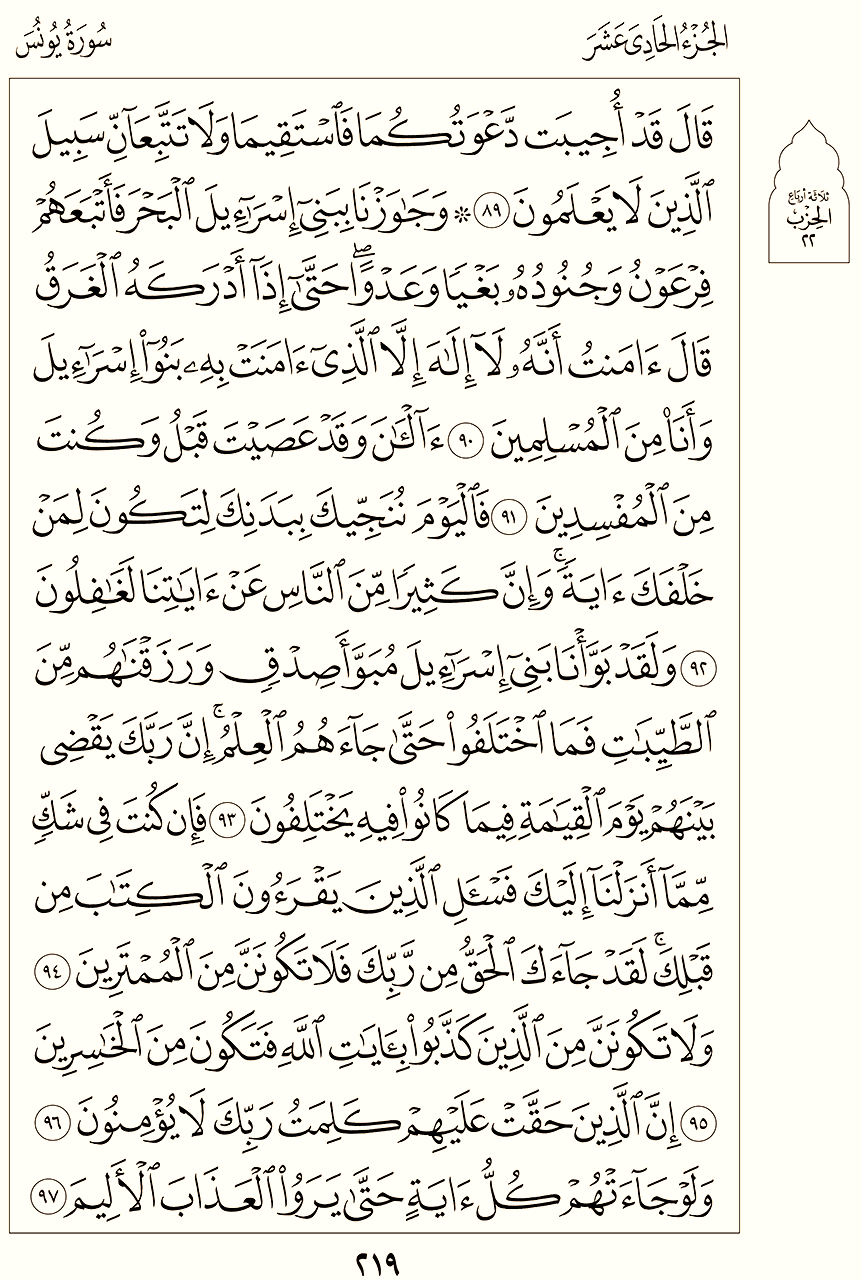 الجُزْءُ الحَادِىَ عَشَرَ
سُورَةُ يُونُسَ
قَالَ قَدْ أُجِيبَت دَّعْوَتُكُمَا فَٱسْتَقِيمَا وَلَا تَتَّبِعَآنِّ سَبِيلَ
ٱلَّذِينَ لَا يَعْلَمُونَ ٨٩ ۞ وَجَٰوَزْنَا بِبَنِىٓ إِسْرَٰٓءِيلَ ٱلْبَحْرَ فَأَتْبَعَهُمْ
فِرْعَوْنُ وَجُنُودُهُۥ بَغْيًا وَعَدْوًا ۖ حَتَّىٰٓ إِذَآ أَدْرَكَهُ ٱلْغَرَقُ
قَالَ ءَامَنتُ أَنَّهُۥ لَآ إِلَٰهَ إِلَّا ٱلَّذِىٓ ءَامَنَتْ بِهِۦ بَنُوٓا۟ إِسْرَٰٓءِيلَ
وَأَنَا۠ مِنَ ٱلْمُسْلِمِينَ ٩٠ ءَآلْـَٰٔنَ وَقَدْ عَصَيْتَ قَبْلُ وَكُنتَ
مِنَ ٱلْمُفْسِدِينَ ٩١ فَٱلْيَوْمَ نُنَجِّيكَ بِبَدَنِكَ لِتَكُونَ لِمَنْ
خَلْفَكَ ءَايَةً ۚ وَإِنَّ كَثِيرًا مِّنَ ٱلنَّاسِ عَنْ ءَايَٰتِنَا لَغَٰفِلُونَ
٩٢ وَلَقَدْ بَوَّأْنَا بَنِىٓ إِسْرَٰٓءِيلَ مُبَوَّأَ صِدْقٍ وَرَزَقْنَٰهُم مِّنَ
ٱلطَّيِّبَٰتِ فَمَا ٱخْتَلَفُوا۟ حَتَّىٰ جَآءَهُمُ ٱلْعِلْمُ ۚ إِنَّ رَبَّكَ يَقْضِى
بَيْنَهُمْ يَوْمَ ٱلْقِيَٰمَةِ فِيمَا كَانُوا۟ فِيهِ يَخْتَلِفُونَ ٩٣ فَإِن كُنتَ فِى شَكٍّ
مِّمَّآ أَنزَلْنَآ إِلَيْكَ فَسْـَٔلِ ٱلَّذِينَ يَقْرَءُونَ ٱلْكِتَٰبَ مِن
قَبْلِكَ ۚ لَقَدْ جَآءَكَ ٱلْحَقُّ مِن رَّبِّكَ فَلَا تَكُونَنَّ مِنَ ٱلْمُمْتَرِينَ ٩٤
وَلَا تَكُونَنَّ مِنَ ٱلَّذِينَ كَذَّبُوا۟ بِـَٔايَٰتِ ٱللَّهِ فَتَكُونَ مِنَ ٱلْخَٰسِرِينَ
٩٥ إِنَّ ٱلَّذِينَ حَقَّتْ عَلَيْهِمْ كَلِمَتُ رَبِّكَ لَا يُؤْمِنُونَ ٩٦
وَلَوْ جَآءَتْهُمْ كُلُّ ءَايَةٍ حَتَّىٰ يَرَوُا۟ ٱلْعَذَابَ ٱلْأَلِيمَ ٩٧
ثَلَاثَة أَربَاع
الحِزْب
٢٢
٢١٩